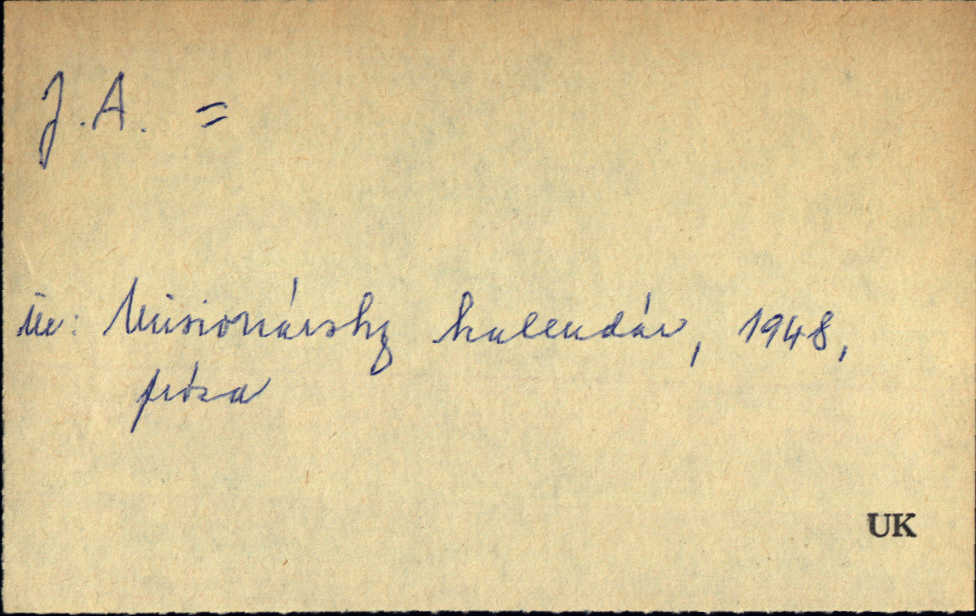 J.A. =
In: Misionársky kalendár, 1948,
próza
UK